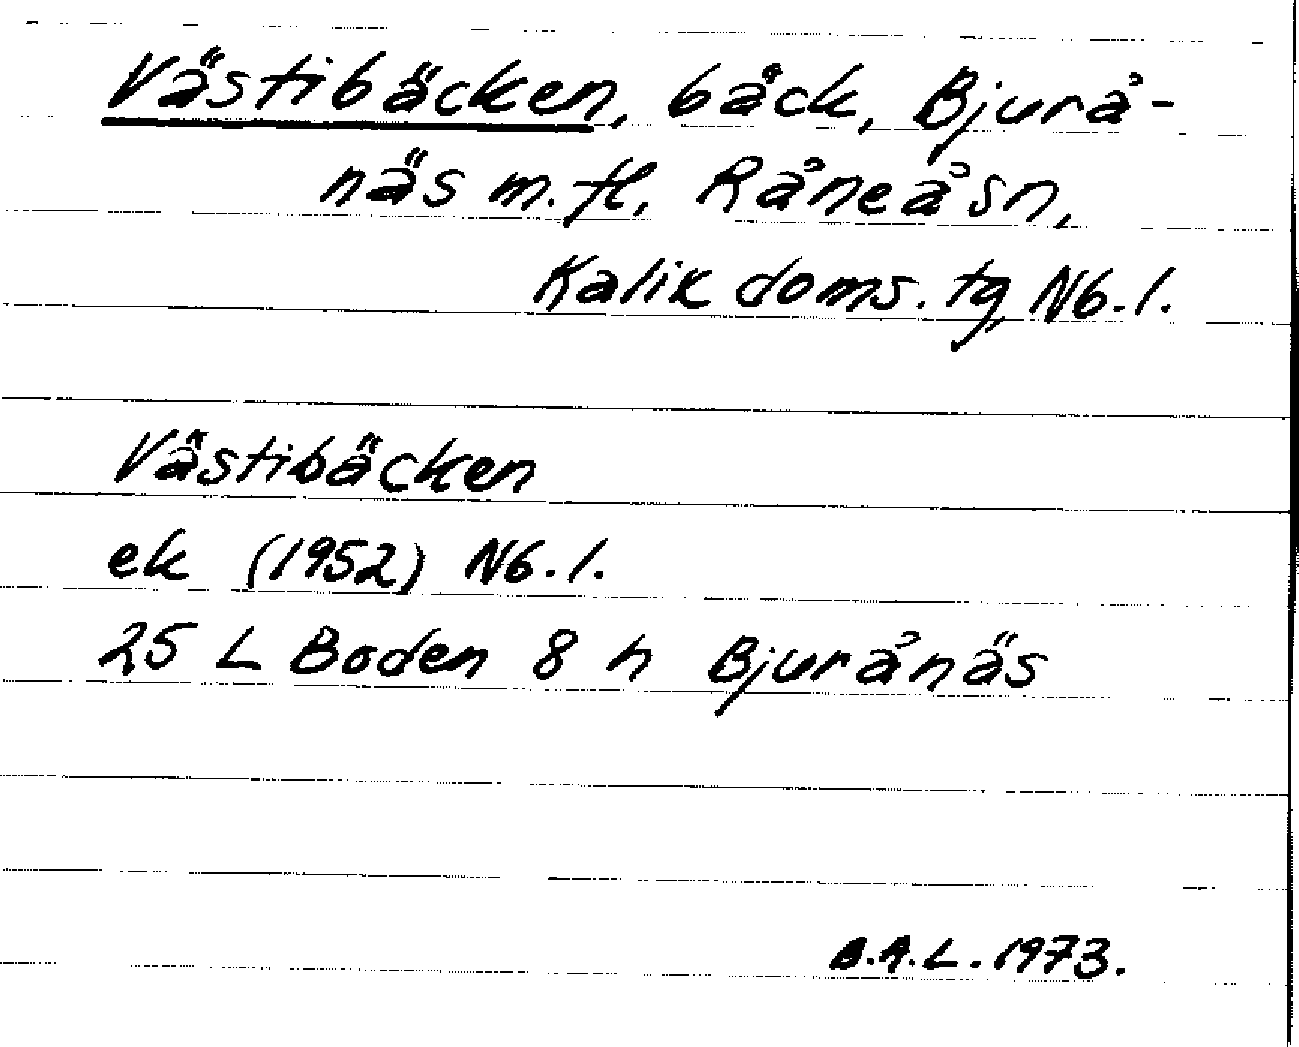 Västibäcken, bäck, Bjurå-
näs m.fl. Råneå sn,
Kalix doms. tg, Nb.l.
Västibäcken
ek (1952) Nb.l.
25 L Boden 8 h Bjurånäs
B.A.L. 1973.